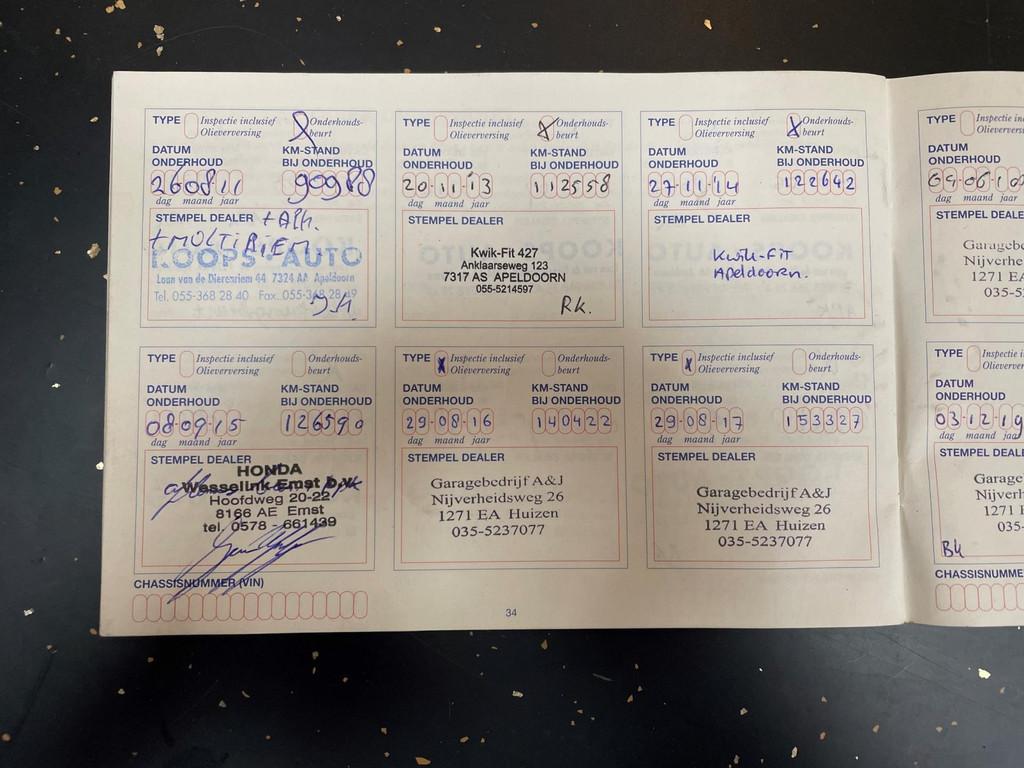 TYPE Inspectie inclusief Onderhouds-
Olieverversing beurt
DATUM KM-STAND
ONDERHOUD BIJ ONDERHOUD
260811 90988
dag maand jaar
STEMPEL DEALER + APK.
+ MULTIRIEM
KOOPS AUTO
Laan van de Dierenriem 44 7324 AA Apeldoorn
Tel. 055-368 28 40 Fax. 055-368 28 49
TYPE Inspectie inclusief Onderhouds-
Olieverversing beurt
DATUM KM-STAND
ONDERHOUD BIJ ONDERHOUD
20-11-13 112558
dag maand jaar
STEMPEL DEALER
Kwik-Fit 427
Anklaarseweg 123
7317 AS APELDOORN
055-5214597
RK.
TYPE Inspectie inclusief Onderhouds-
Olieverversing beurt
DATUM KM-STAND
ONDERHOUD BIJ ONDERHOUD
27-11-14 122642
dag maand jaar
STEMPEL DEALER
Kwik-Fit
Apeldoorn.
TYPE Inspectie inclusief Onderhouds-
Olieverversing beurt
DATUM KM-STAND
ONDERHOUD BIJ ONDERHOUD
08-09-15 126590
dag maand jaar
STEMPEL DEALER
HONDA
Wesselink Emst b.v.
Hoofdweg 20-22
8166 AE Emst
tel. 0578 - 661439
CHASSISNUMMER (VIN)
TYPE Inspectie inclusief Onderhouds-
Olieverversing beurt
DATUM KM-STAND
ONDERHOUD BIJ ONDERHOUD
29-08-16 140422
dag maand jaar
STEMPEL DEALER
Garagebedrijf A&J
Nijverheidsweg 26
1271 EA Huizen
035-5237077
TYPE Inspectie inclusief Onderhouds-
Olieverversing beurt
DATUM KM-STAND
ONDERHOUD BIJ ONDERHOUD
29-08-17 153327
dag maand jaar
STEMPEL DEALER
Garagebedrijf A&J
Nijverheidsweg 26
1271 EA Huizen
035-5237077
34
TYPE Inspectie in
Olieverversin
DATUM
ONDERHOUD
dag maand
STEMPEL DEALE
Garageb
Nijverh
1271 EA
035-5
TYPE Inspectie i
Olieverversi
DATUM
ONDERHOUD
03-12-19
dag maand ja
STEMPEL DEALE
Garage
Nijverh
1271 E
035-
BK
CHASSISNUMME